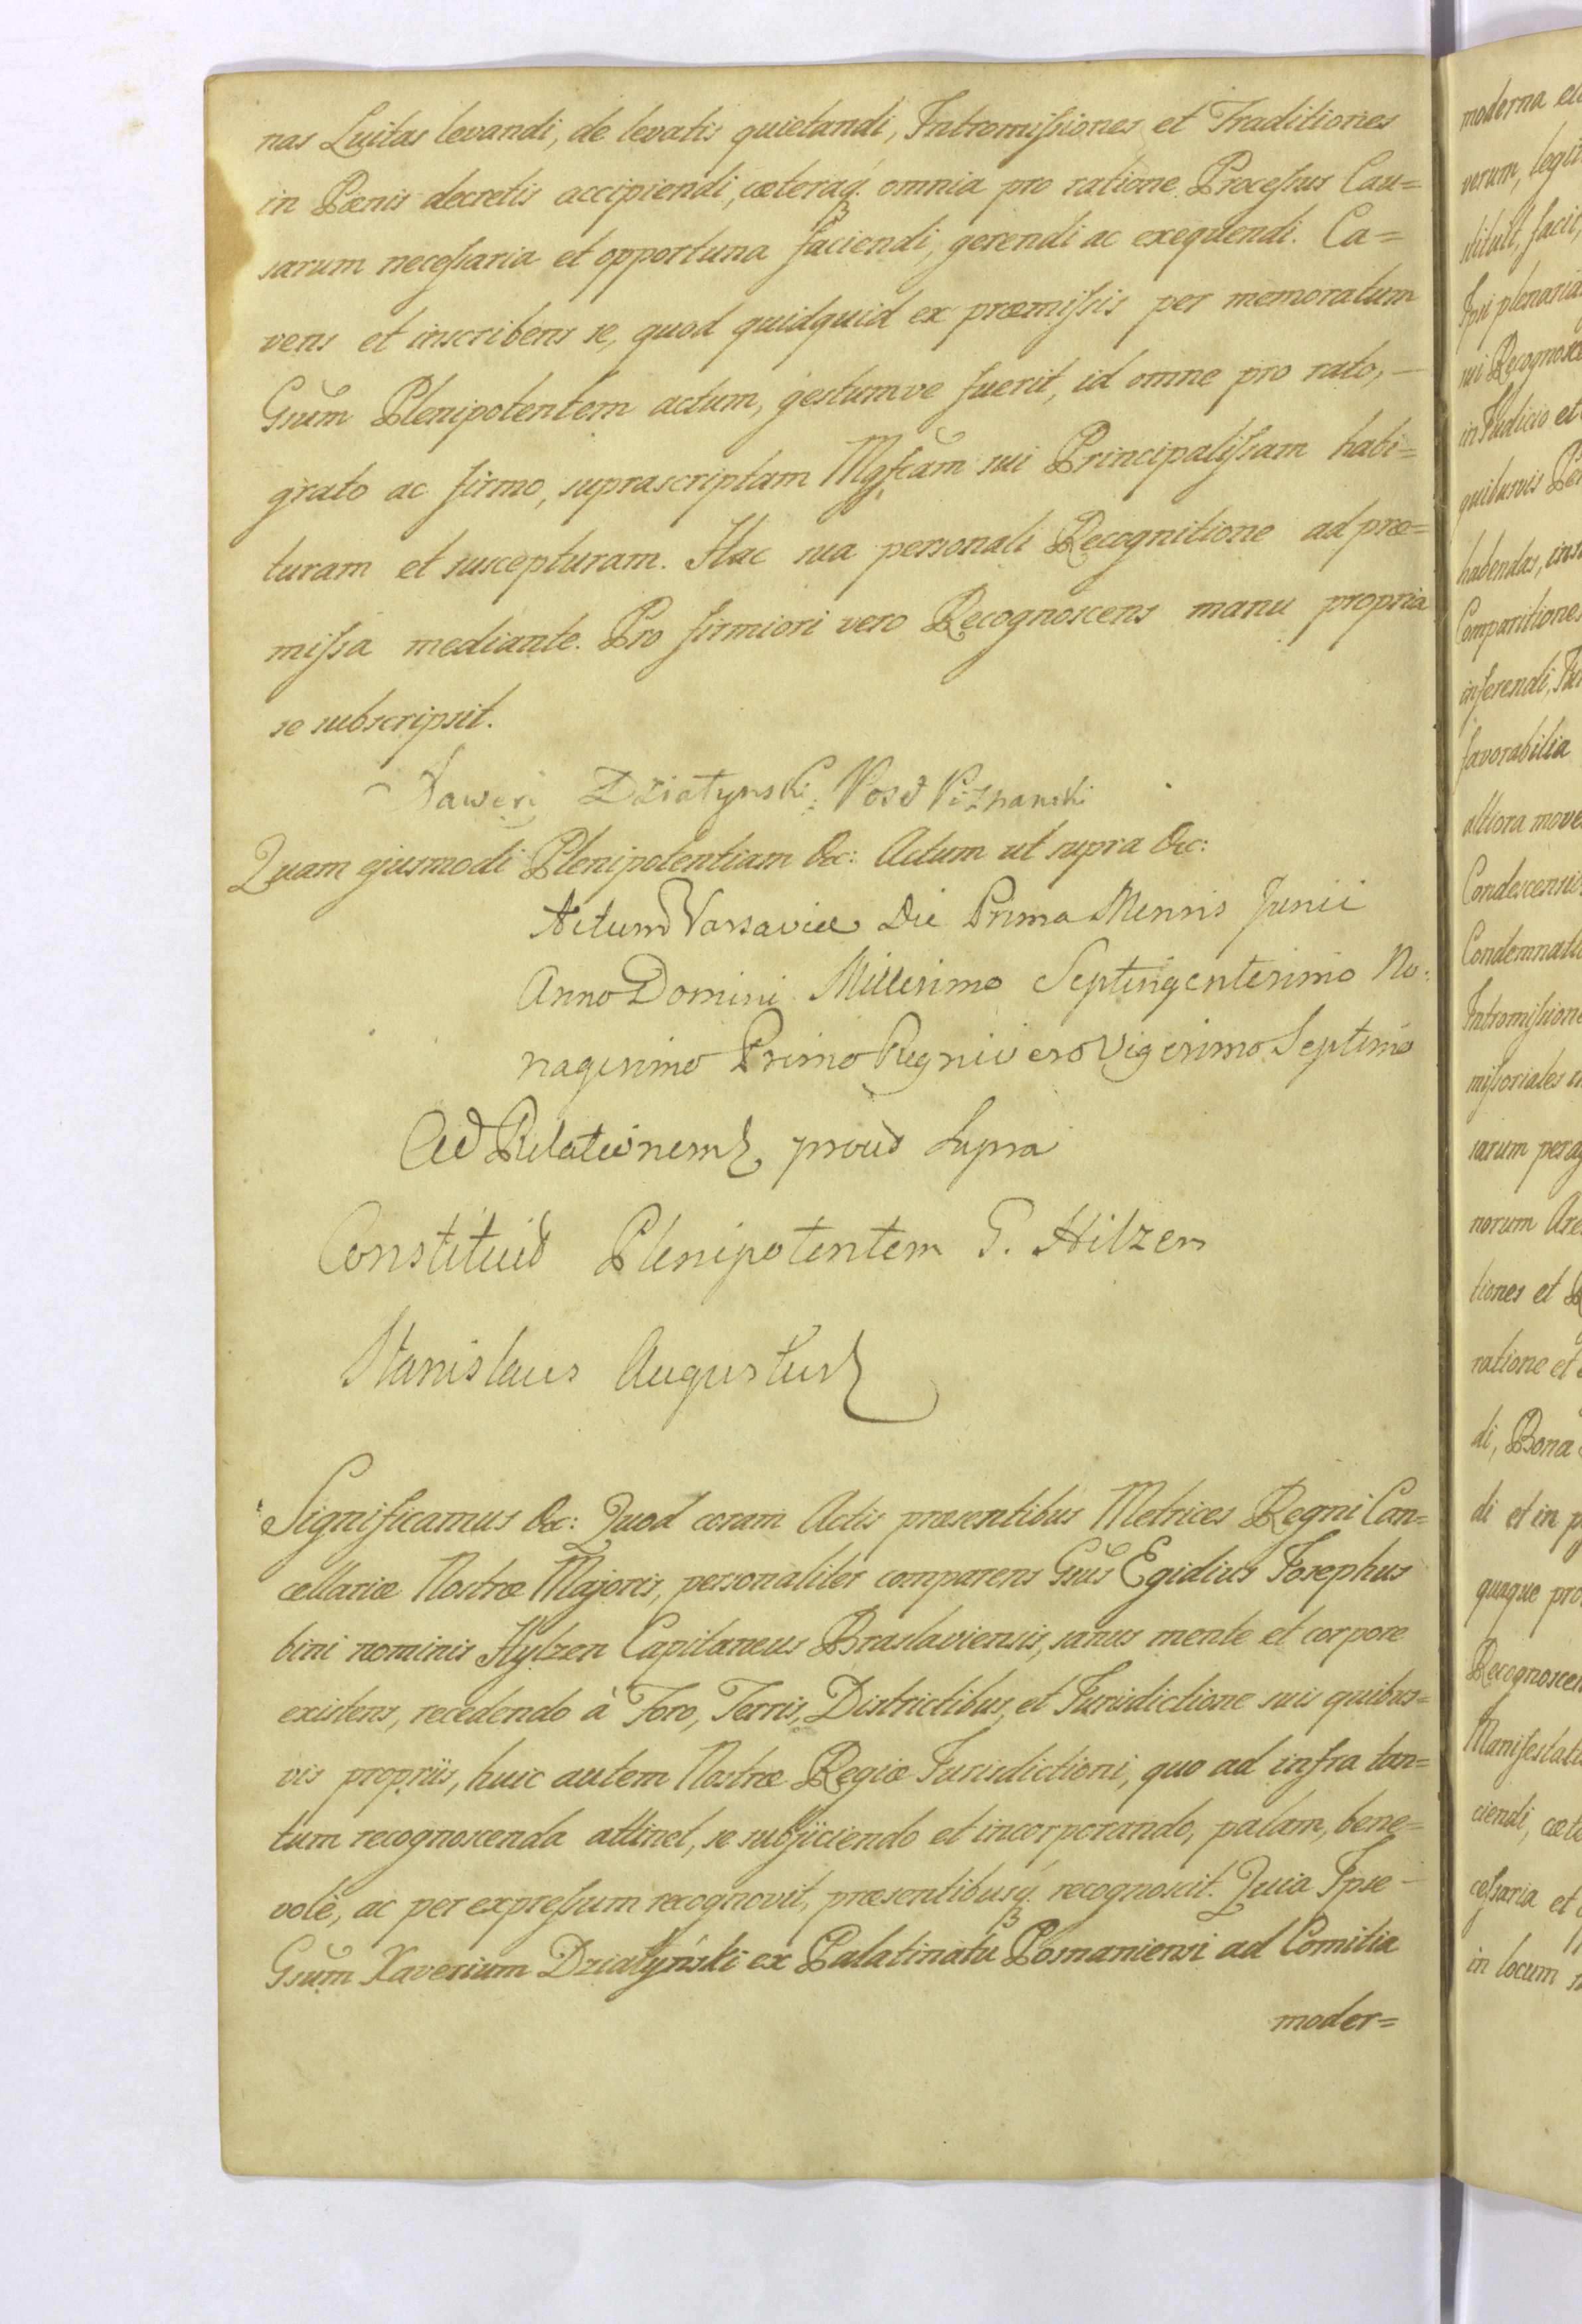 nas Luitas levandi, de levatis quietandi, Intromiſsiones et Traditiones
in Pœnis decretis accipiendi, cœteraq́ꝫ omnia pro ratione Proceſsus Cau=
sarum neceſsaria et opportuna faciendi, gerendi ac exequendi. Ca=
vens et inscribens se, quod quidquid ex prœmiſsis per memoratum
Gsum̃ Plenipotentem actum, gestumve fuerit, id omne pro rato, —
grato ac firmo, suprascriptam Mgfcam̃ sui Principaliſsam habi=
turam et suscepturam. Hac sua personali Recognitione ad prœ=
miſsa mediante. Pro firmiori vero Recognoscens manu propria
se subscripsit.
Xawery Działynski Poseł Poznanski
Quam ejusmodi Plenipotentiam &c: Actum ut supra &c:
Actum Varsaviæ Die Prima Mensis Junii
Anno Domini Millesimo Septingentesimo No:
nagesimo Primo Regni vero Vigesimo Septimo
Ad Relationem prout Supra
Constituit Plenipotentem G. Hilzen
Stanislaus Augustus
Significamus &c: Quod coram Actis prœsentibus Metrices Regni Can=
cellariœ Nostrœ Majoris, personaliter comparens Gsus̃ Egidius Josephus
bini nominis Hylzen Capitaneus Braslaviensis, sanus mente et corpore
existens, recedendo à Foro, Terris, Districtibus, et Jurisdictione suis quibus=
vis propriis, huic autem Nostrœ Regiœ Jurisdictioni, quo ad infra tan=
tum recognoscenda attinet, se subjiciendo et incorporando, palam, bene=
volè, ac per expreſsum recognovit, prœsentibusq́ꝫ recognoscit. Quia Ipse —
Gsum̃ Xaverium Działyński ex Palatinatu Posnaniensi ad Comitia
moder=
moderna
verum,
stituit, facit,
Ipsi
sui
in Judicio et
quibusvis
habendas,
inferendi,
favorabilia
altiora
sarum
norum
tiones et
ratione et
di, Bona
di et in
quaque
ciendi,
in locum